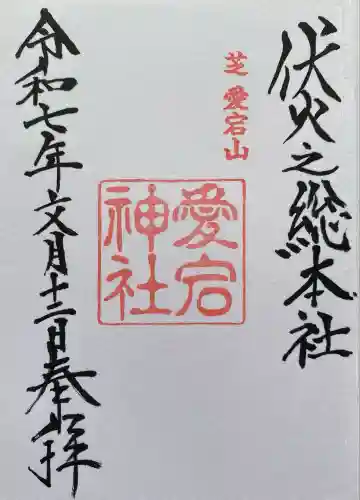 伏火之總本社
芝 愛宕山
愛宕
神社
令和七年文月十二日奉拝